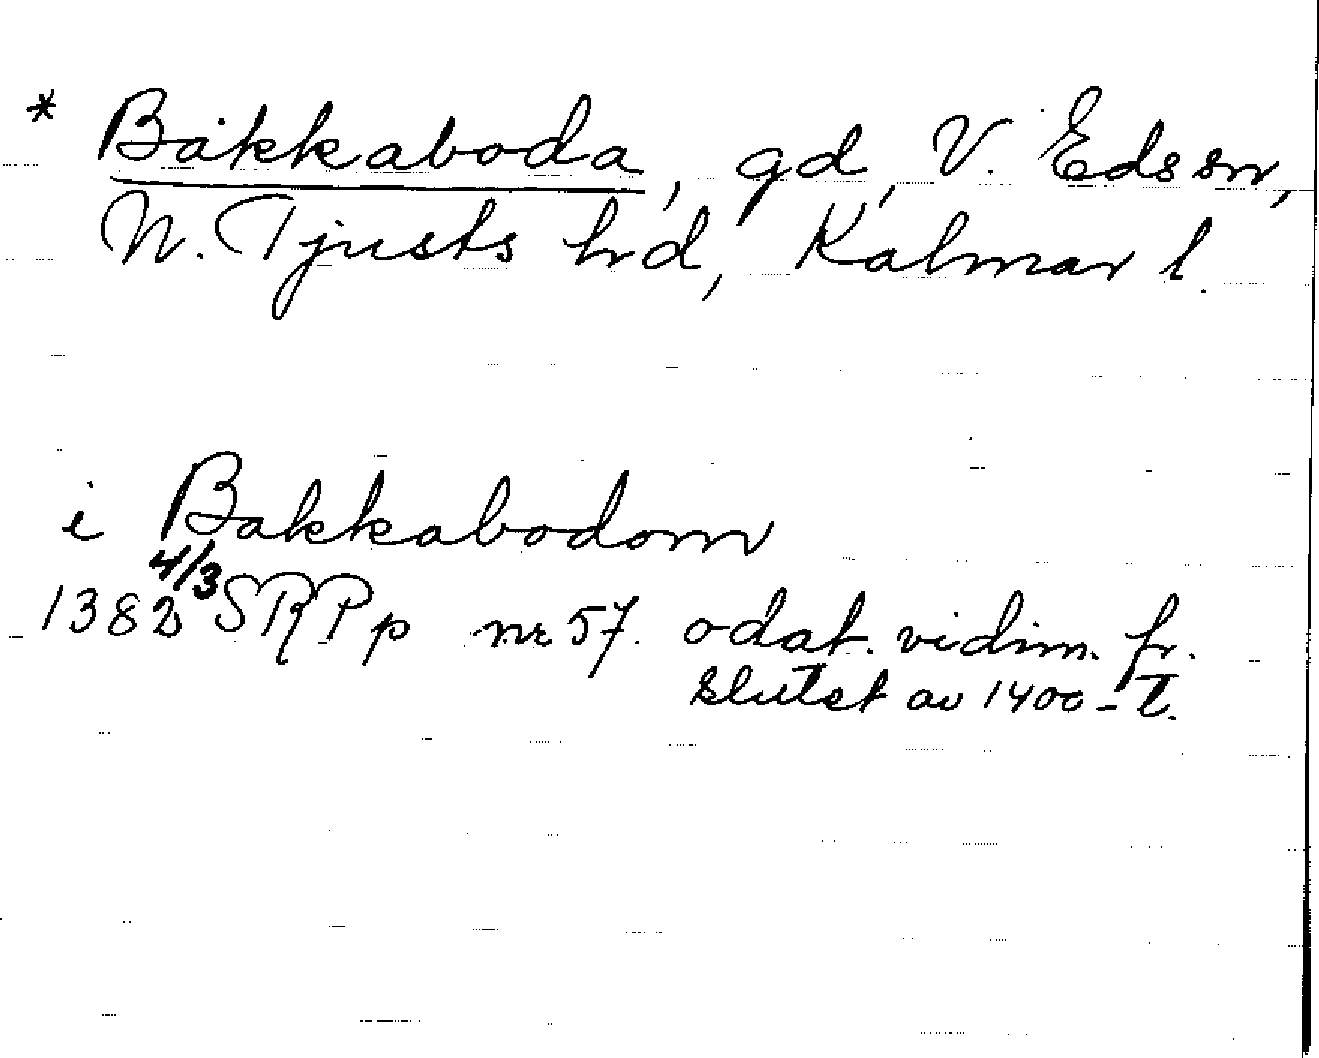 * Bakkaboda, gd, V. Eds sn,
N. Tjusts hd, Kalmar l.
i Bakkabodom
1382 4/3 SRPp nr 57. odat. vidim. fr.
slutet av 1400-t.